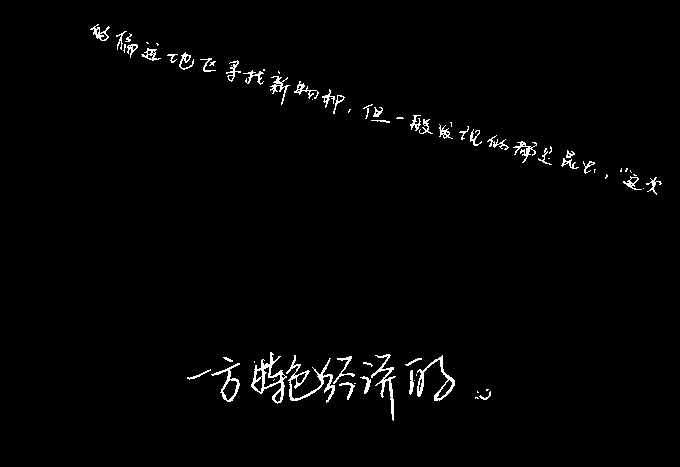 的偏远地区寻找新物种，但一般发现的都是昆虫，“这次
一方特色经济的